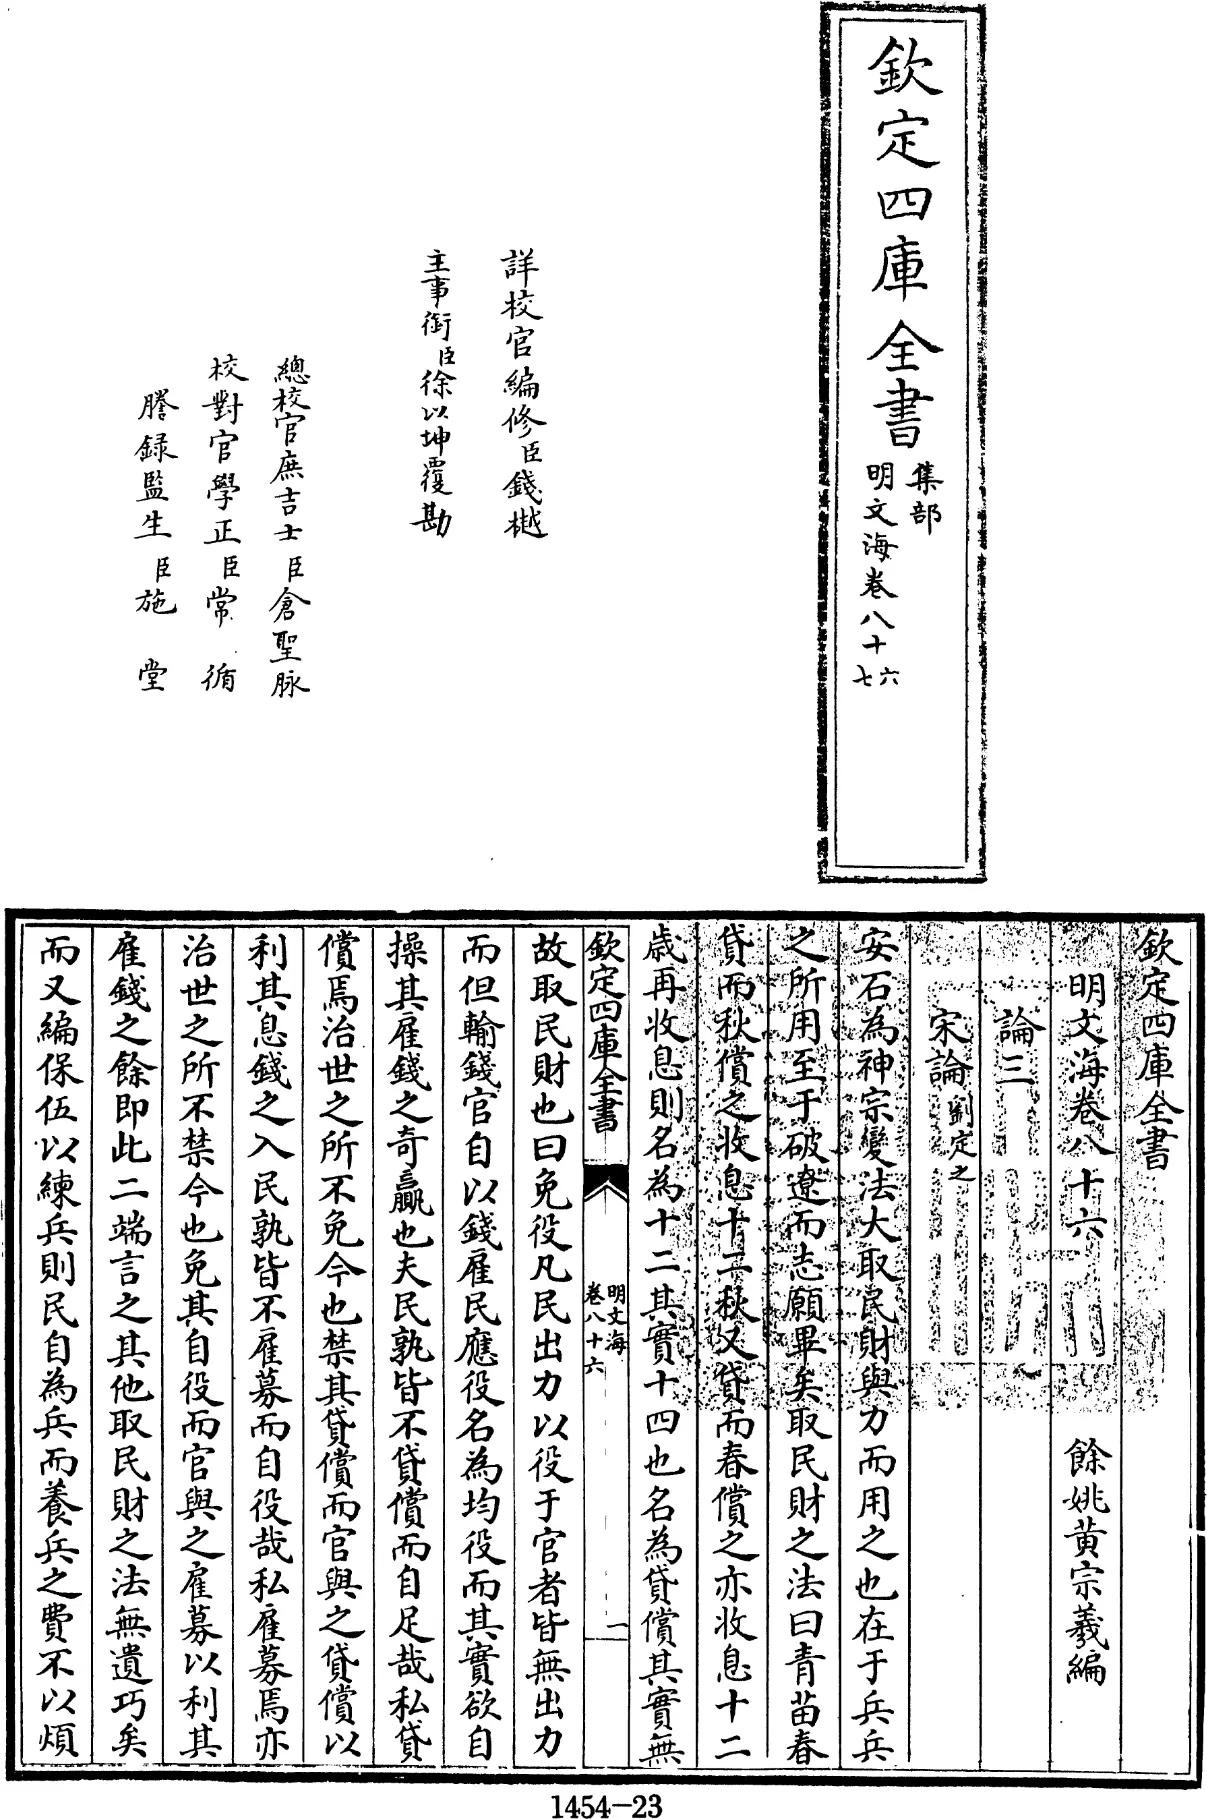 欽定四庫全書
集部
明文海卷八十六
七
詳校官編修臣錢樾
主事銜臣徐以坤覆勘
總校官庶吉士臣倉聖脉
校對官學正臣常循
謄録監生臣施堂
欽定四庫全書
明文海卷八十六
餘姚黄宗羲編
論三
宋論劉定之
安石為神宗變法大取民財與力而用之也在于兵兵
之所用至于破遼而志願畢矣取民財之法曰青苗春
貸而秋償之收息十二秋又貸而春償之亦收息十二
歳再收息則名為十二其實十四也名為貸償其實無
欽定四庫全書
明文海
卷八十六
一
故取民財也曰免役凡民出力以役于官者皆無出力
而但輸錢官自以錢雇民應役名為均役而其實欲自
操其雇錢之奇贏也夫民孰皆不貸償而自足哉私貸
償焉治世之所不免今也禁其貸償而官與之貸償以
利其息錢之入民孰皆不雇募而自役哉私雇募焉亦
治世之所不禁今也免其自役而官與之雇募以利其
雇錢之餘即此二端言之其他取民財之法無遺巧矣
而又編保伍以練兵則民自為兵而養兵之費不以煩
1454-23